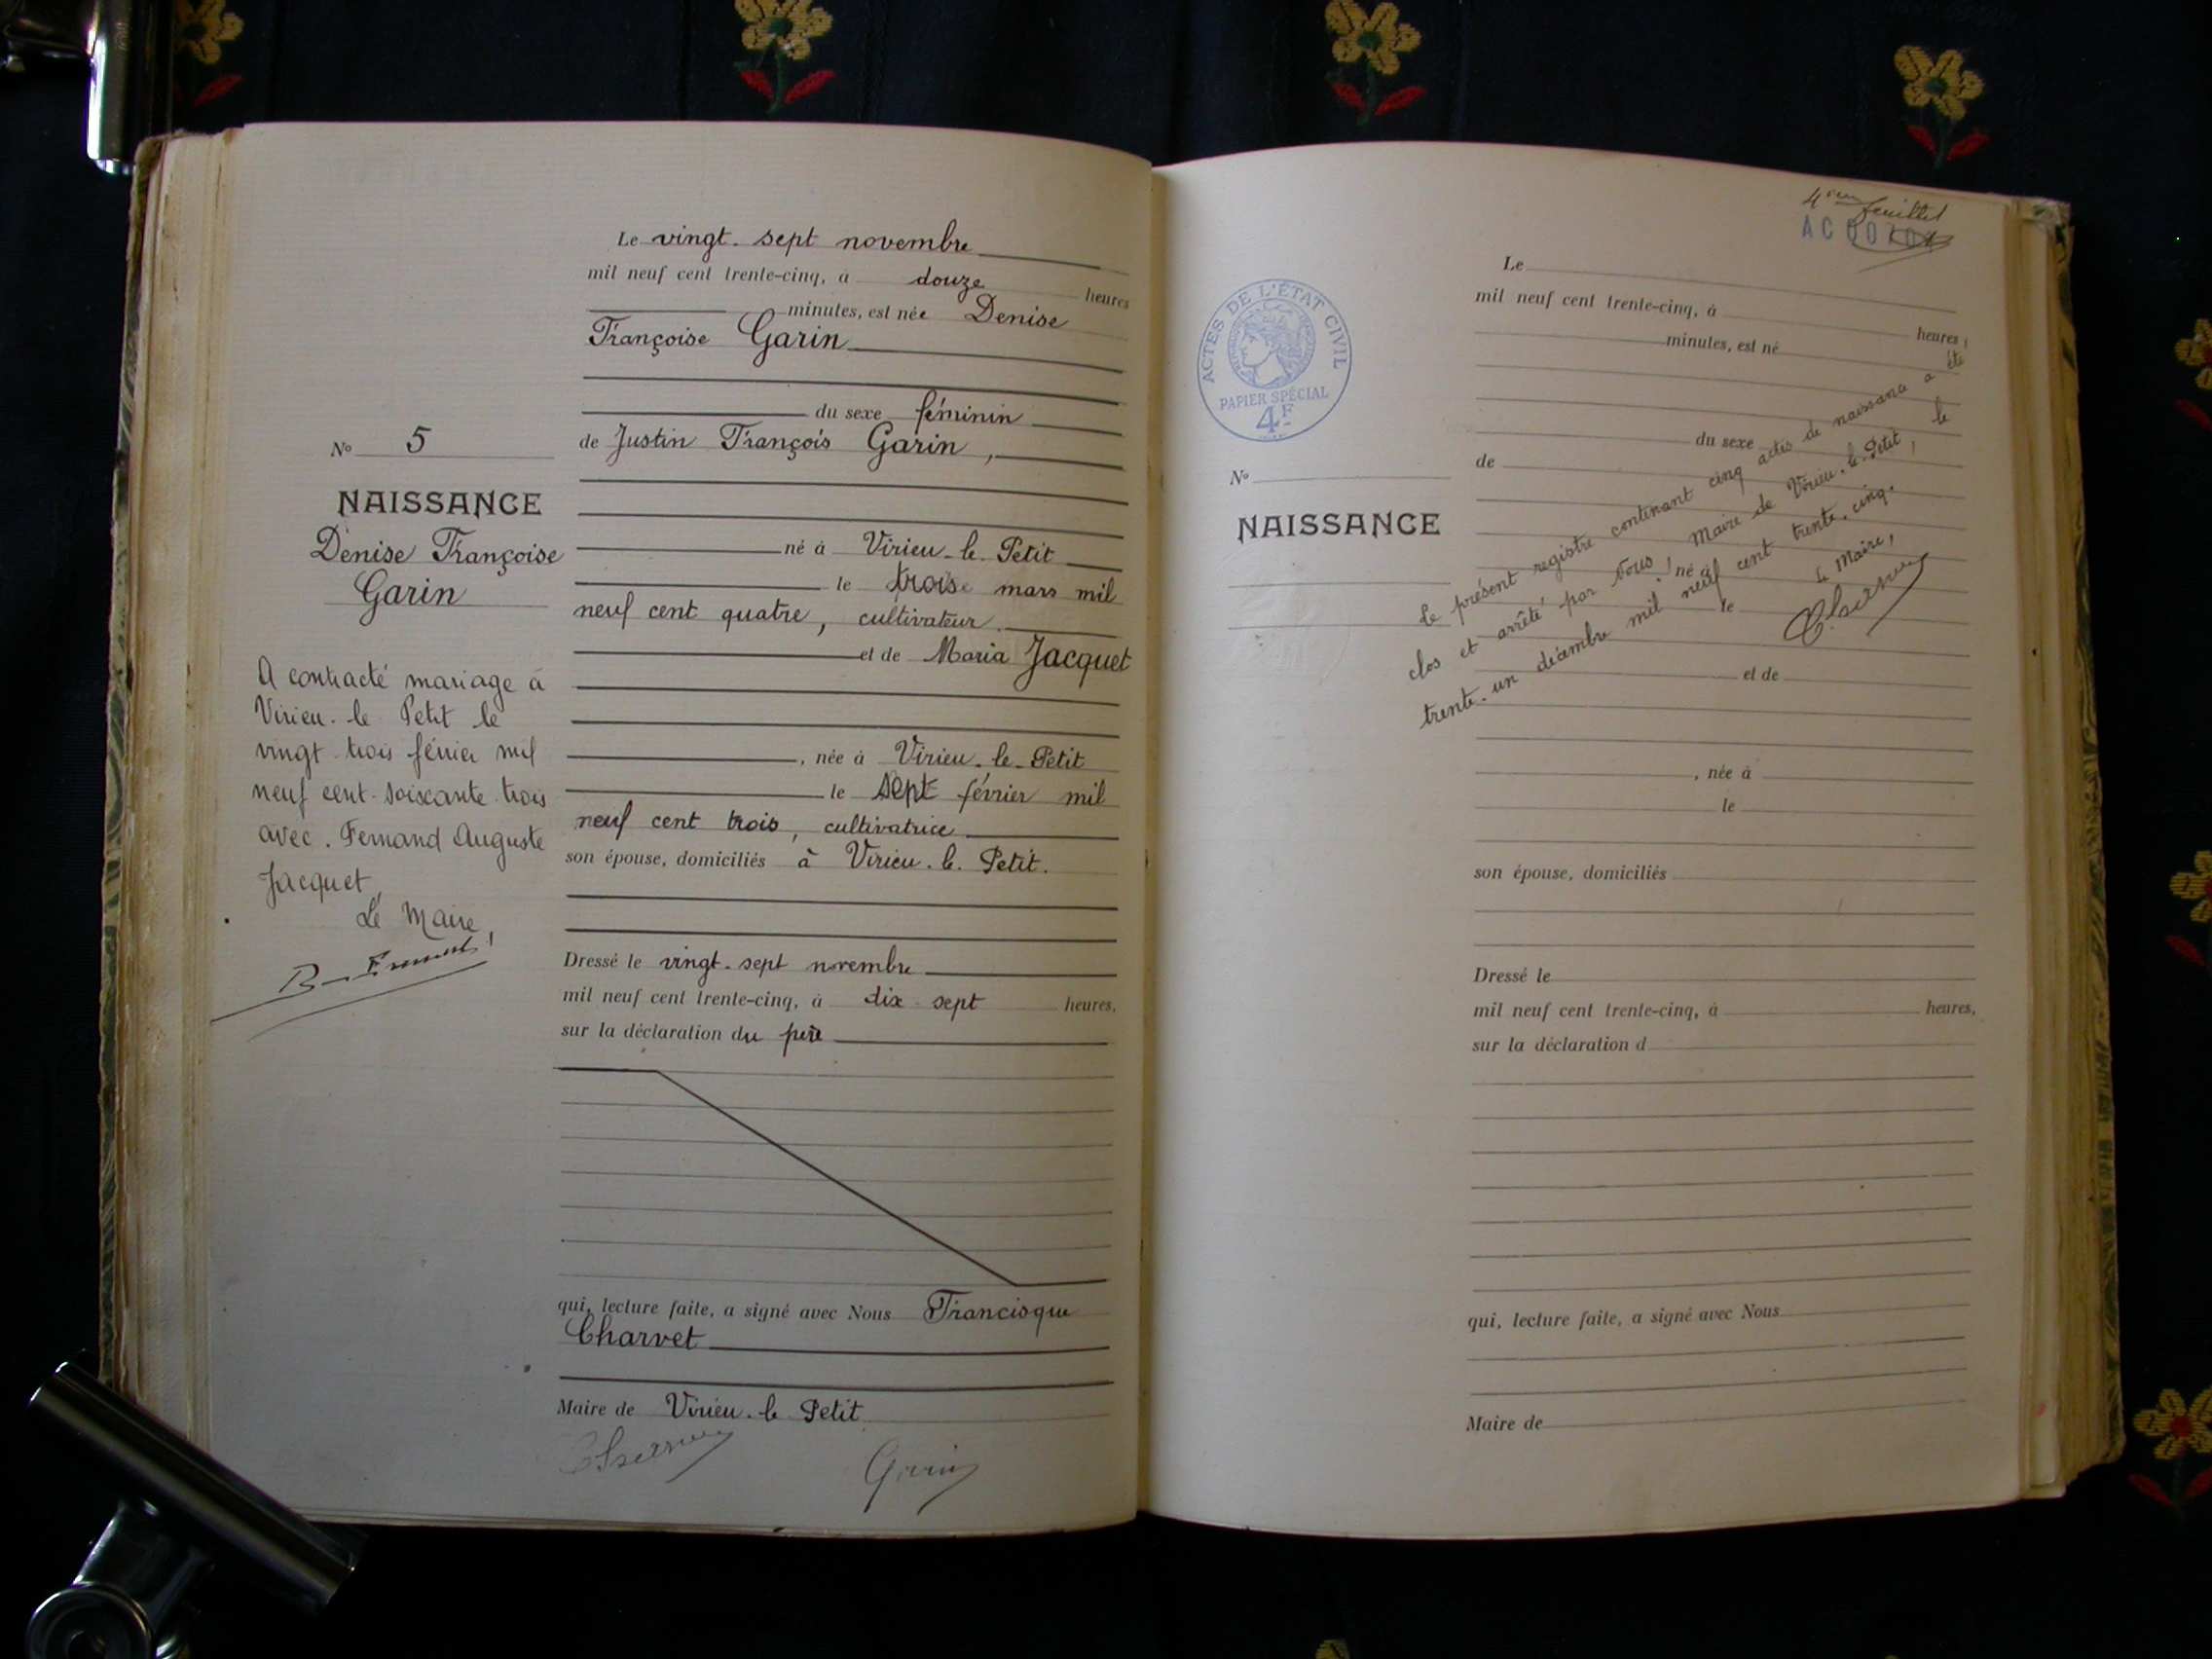 Le vingt-sept novembre
mil neuf cent trente-cinq, à douze heures
minutes, est née Denise
Françoise Garin
du sexe féminin
de Justin François Garin,
né à Virieu-le-Petit
le trois mars mil
neuf cent quatre, cultivateur
et de Maria Jacquet
, née à Virieu-le-Petit
le sept février mil
neuf cent trois, cultivatrice
son épouse, domiciliés à Virieu-le-Petit.
Dressé le vingt-sept novembre
mil neuf cent trente-cinq, à dix-sept heures,
sur la déclaration du père
qui, lecture faite, a signé avec Nous Francisque
Charvet
Maire de Virieu-le-Petit
Garin
No 5
NAISSANCE
Denise Françoise
Garin
A contracté mariage à
Virieu-le Petit le
vingt-trois février mil
neuf cent-soixante-trois
avec. Fernand Auguste
Jacquet
Le Maire,
4ème feuillet
ACTES DE L'ÉTAT CIVIL
PAPIER SPÉCIAL
4F
No
NAISSANCE
Le
mil neuf cent trente-cinq, à heures
minutes, est né
du sexe
de
né à
le
et de
, née à
le
son épouse, domiciliés
Dressé le
mil neuf cent trente-cinq, à heures,
sur la déclaration d
qui, lecture faite, a signé avec Nous
Maire de
Le présent registre contenant cinq actes de naissance a été
clos et arrêté par Nous, Maire de Virieu-le-Petit, le
trente-un décembre mil neuf cent trente-cinq.
Le Maire,